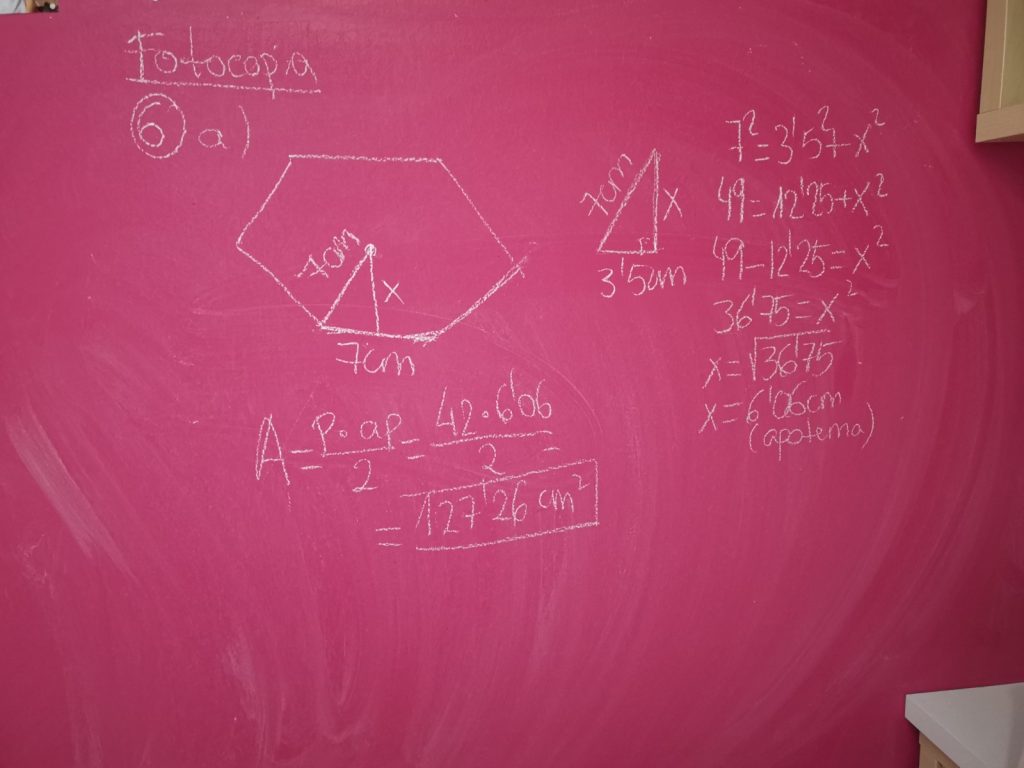 Fotocopia
6 a)
7cm
x
7cm
7cm
x
3'5cm
7²=3'5²+x²
49=12'25+x²
49-12'25=x²
36'75=x²
x=√36'75
x=6'06cm
(apotema)
A=P·ap/2=42·6'06/2=
=127'26 cm²